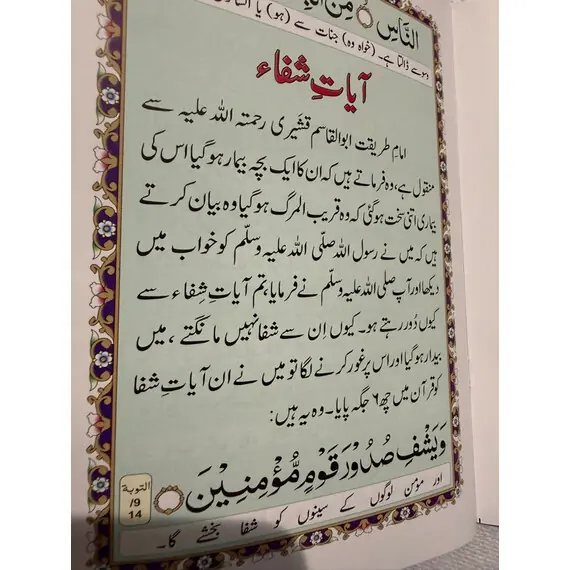 النَّاسِ ۝ مِنَ
وسوسے ڈالتا ہے۔ (خواہ وہ) جنات سے (ہو) یا
آیاتِ شفاء
امامِ طریقت ابوالقاسم قشیری رحمتہ اللہ علیہ سے
منقول ہے، وہ فرماتے ہیں کہ ان کا ایک بچہ بیمار ہو گیا اس کی
بیماری اتنی سخت ہو گئی کہ وہ قریب المرگ ہو گیا وہ بیان کرتے
ہیں کہ میں نے رسول اللہ صلّی اللہ علیہ وسلّم کو خواب میں
دیکھا اور آپ صلی اللہ علیہ وسلّم نے فرمایا، تم آیاتِ شِفاء سے
کیوں دُور رہتے ہو۔ کیوں اِن سے شفا نہیں مانگتے ، میں
بیدار ہو گیا اور اس پر غور کرنے لگا تو میں نے ان آیاتِ شفا
کو قرآن میں چھ ۶ جگہ پایا۔ وہ یہ ہیں:
وَيَشْفِ صُدُوْرَ قَوْمٍ مُّؤْمِنِيْنَ ۝
التوبة
9/
14
اور مؤمن لوگوں کے سینوں کو شفا بخشے گا۔